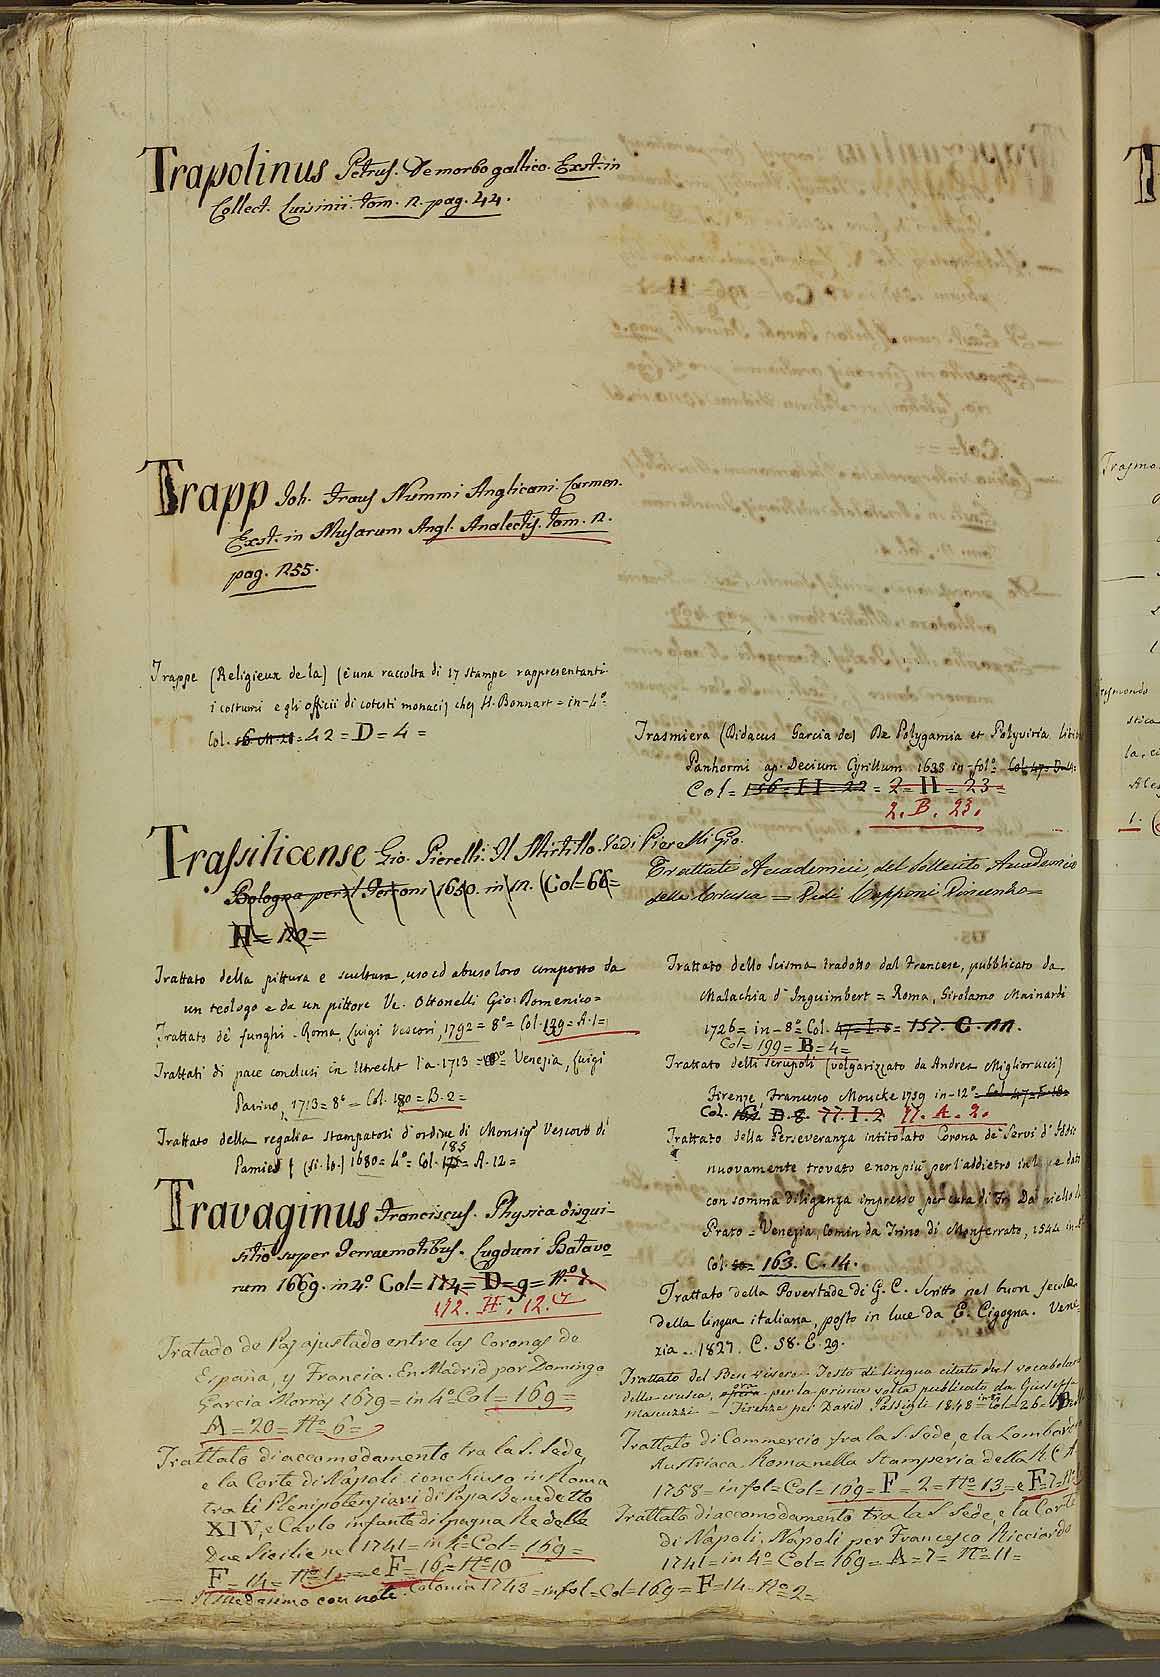 Trapolinus Petrus. De morbo gallico. Exst. in
Collect. Luisinii. tom. 2. pag. 44.
Trapp Joh. Fraus Nummi Anglicani. Carmen.
Exst. in Musarum Angl. Analectis. tom. 2.
pag. 255.
Trappe (Religieux de la) (è una raccolta di 17 stampe rappresentanti
i costumi e gli officii di cotesti monaci) chez H. Bonnart = in-4º
Col. = 42 = D = 4 =
Trassilicense Gio. Pierelli. Il Mirtillo. Vedi Pierelli Gio.
Bologna per il Ferroni 1650. in 12. (Col = 66 =
H = 120 =
Trattato della pittura e scultura, uso ed abuso loro composto da
un teologo e da un pittore Ve. Ottonelli Gio: Domenico =
Trattato de' funghi. Roma, Luigi Vescovi, 1792 = 8º = Col. 139 = A. 1 =
Trattati di pace conclusi in Utrecht l'a. 1713 = Venezia, Luigi
Pavino, 1713 = 8º = Col. 180 = B. 2 =
Trattato della regalia stampatosi d'ordine di Monsigr Vescovo di
Pamies (si. lo.) 1680 = 4º = Col. 185 = A. 12 =
Travaginus Franciscus. Physica disqui-
sitio super terraemotibus. Lugduni Batavo
rum 1669. in 4º. Col = 174 = D = 9 = nº 7.
172. H. 12.
Tratado de Paz ajustado entre las Coronas de
España, y Francia. En Madrid por Domingo
Garcia Morràs 1679 = in 4º Col = 169 =
A = 20 = Nº 6 =
Trattato di accomodamento tra la S. Sede,
e la Corte di Napoli conchiuso in Roma
tra li Plenipotenziari di Papa Benedetto
XIV, e Carlo infante di Spagna Re delle
Due Sicilie nel 1741 = in 4º = Col = 169 =
F = 14 = Nº 1 = e F = 16 = Nº 10
— Il medesimo con note. Colonia 1743 = in fol = Col = 169 = F = 14 = Nº 2 =
Trasmiera (Didacus Garcia de) De Polygamia et Polyviria libri
Panhormi ap. Decium Cyrillum 1638 in-folº =
Col = 156 = II = 22 = 2 = H = 23 =
2. B. 23.
Trattati Accademici, del sollecito Accademico
della Crusca = Vedi Capponi Vincenzo =
Trattato dello Scisma tradotto dal Francese, pubblicato da
Malachia d'Inguimbert = Roma, Girolamo Mainardi
1726 = in-8º Col. 47 = I. 5 = 157. C. 11.
Col = 199 = B = 4 =
Trattato delli scrupoli (volgarizzato da Andrea Migliorucci)
Firenze, Francesco Moucke 1759 in-12º =
Col. 77. I. 2 77. A. 2.
Trattato della Perseveranza intitolato Corona de' Servi d'Iddio
nuovamente trovato e non più per l'addietro in luce dato
con somma diligenza impresso per cura di Fr. Daniello da
Prato = Venezia, Comin da Trino di Monferrato, 1544 in-8º
Col. = 163. C. 14.
Trattato della Povertade di G. C. scritto nel buon secolo
della lingua italiana, posto in luce da E. Cigogna. Vene-
zia. 1827. C. 58. E. 29.
Trattato del Ben vivere. Testo di lingua citato dal vocabolario
della crusca, ora per la prima volta pubblicato da Giuseppe
Manuzzi – Firenze per David Passigli 1848 = Col = 26 =
Trattato di Commercio fra la S. Sede, e la Lombardia
Austriaca. Roma nella Stamperia della R. C. A
1758 = in fol = Col = 169 = F = 2 = Nº 13 = e F = 7 =
Trattato di accomodamento tra la S. Sede, e la Corte
di Napoli. Napoli per Francesco Ricciardo
1741 = in 4º Col = 169 = A = 7 = Nº 11 =